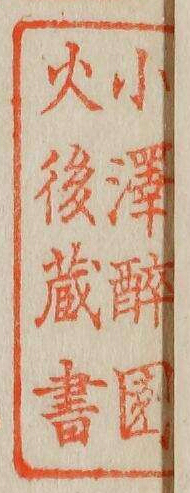 小澤醉園
火後藏書